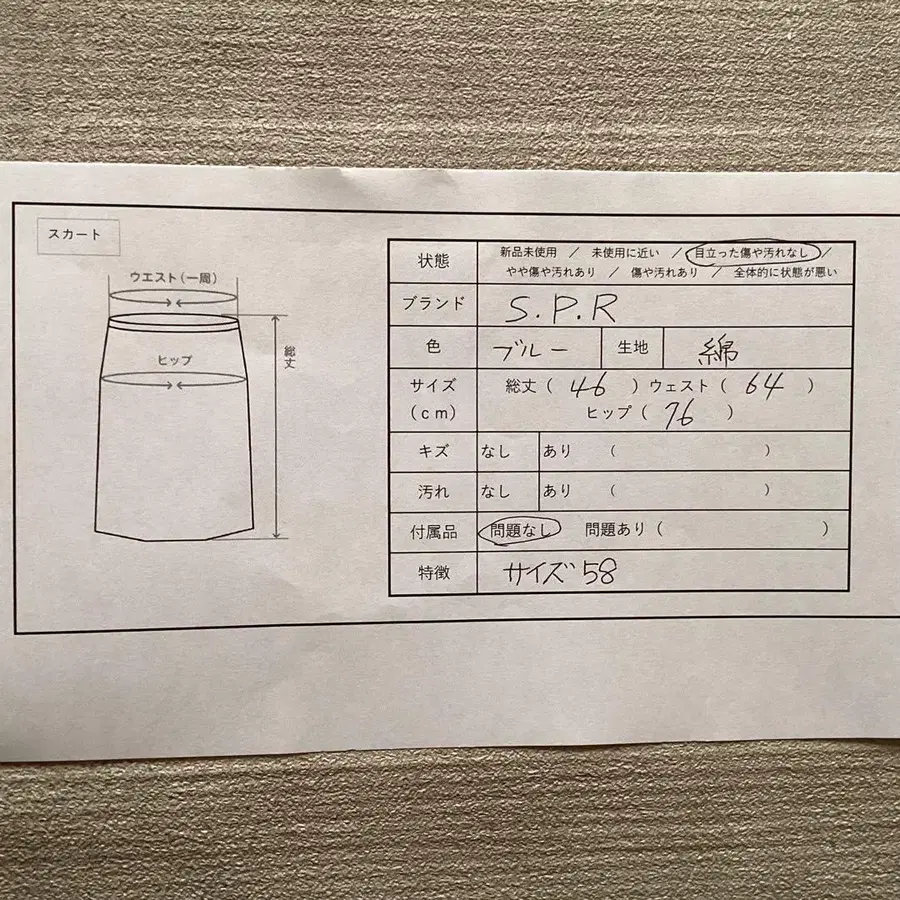 スカート
ウエスト(一周)
ヒップ
総丈
状態
新品未使用 / 未使用に近い / 目立った傷や汚れなし /
やや傷や汚れあり / 傷や汚れあり / 全体的に状態が悪い
ブランド S.P.R
色 ブルー 生地 綿
サイズ(cm) 総丈( 46 )ウェスト( 64 )
ヒップ( 76 )
キズ なし あり ( )
汚れ なし あり ( )
付属品 問題なし 問題あり( )
特徴 サイズ58